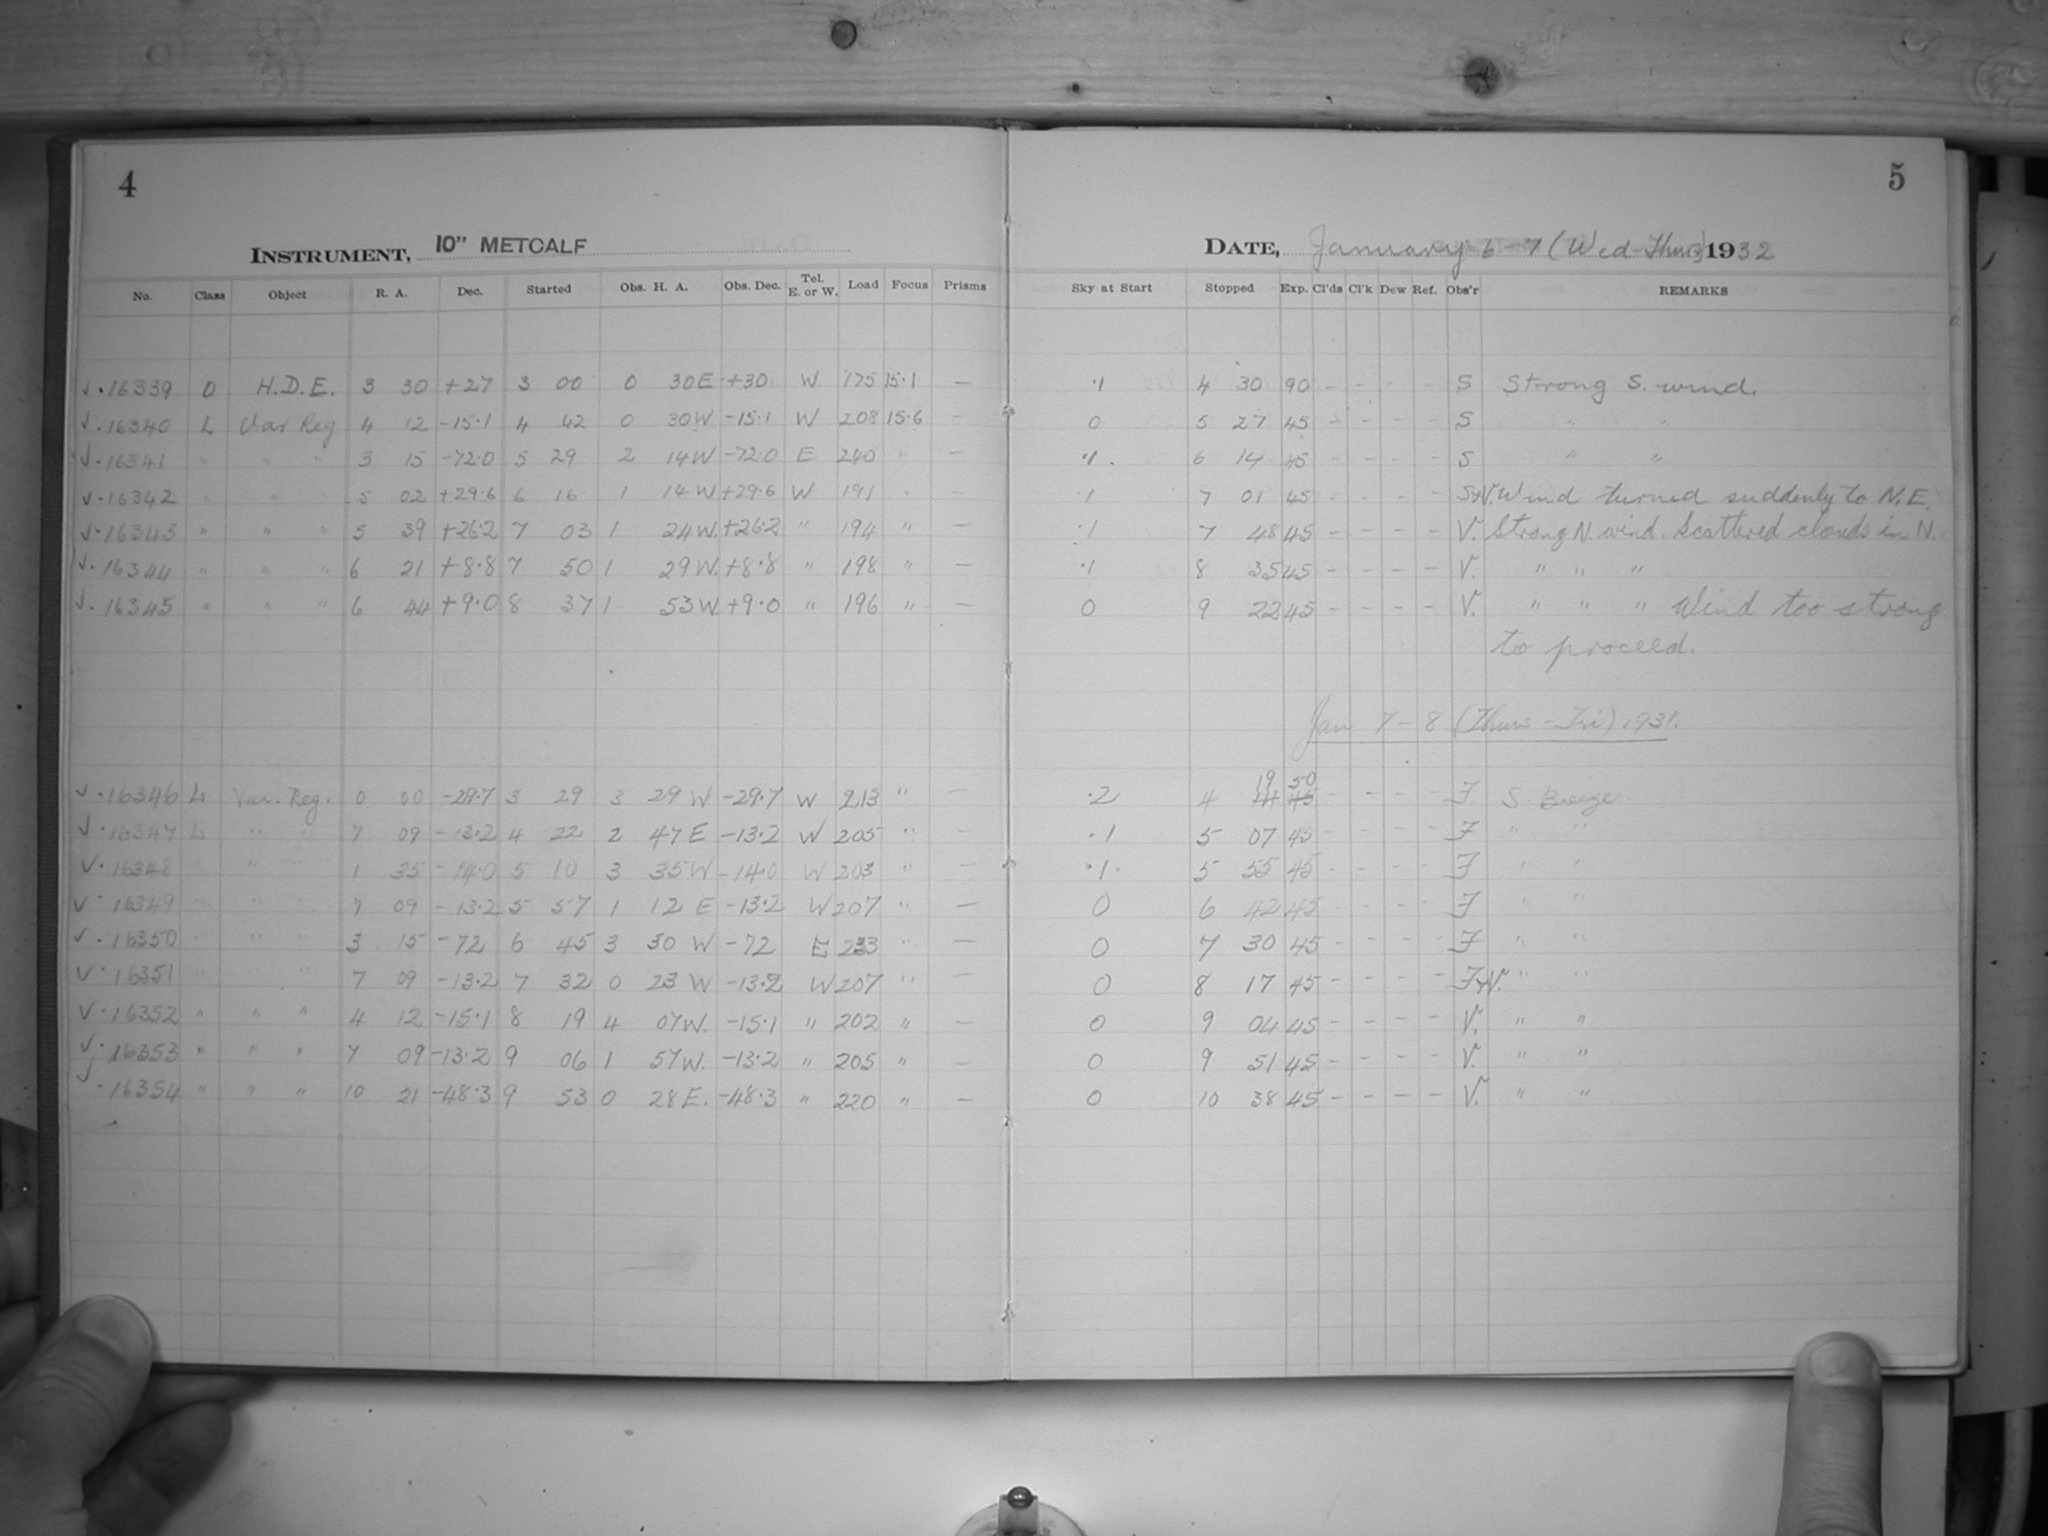 4
5
INSTRUMENT, 10" METCALF
DATE, January 6-7 (Wed-Thur) 1932
No. Class Object R. A. Dec. Started Obs. H. A. Obs. Dec. Tel. E. or W. Load Focus Prisms Sky at Start Stopped Exp. Cl'ds Cl'k Dew Ref. Obs'r REMARKS
√·16339 D H.D.E. 3 30 +27 3 00 0 30E +30 W 175 15·1 — ·1 4 30 90 - - - - S Strong S. wind.
√·16340 L Var Reg 4 12 -15·1 4 42 0 30W -15·1 W 208 15·6 - 0 5 27 45 - - - - S " "
√·16341 " " " 3 15 -72·0 5 29 2 14W -72·0 E 240 " - ·1. 6 14 45 - - - - S " "
√·16342 " " " 5 02 +29·6 6 16 1 14W +29·6 W 191 " - ·1 7 01 45 - - - - S+V. Wind turned suddenly to N.E.
√·16343 " " " 5 39 +26·2 7 03 1 24W. +26·2 " 194 " - ·1 7 48 45 - - - - V. Strong N. wind. Scattered clouds in N.
√·16344 " " " 6 21 +8·8 7 50 1 29W. +8·8 " 198 " - ·1 8 35 45 - - - - V. " " "
√·16345 " " " 6 44 +9·0 8 37 1 53W. +9·0 " 196 " - 0 9 22 45 - - - - V. " " " Wind too strong
to proceed.
Jan 7-8 (Thurs-Fri) 1931.
19 50
√·16346 L Var. Reg. 0 00 -29·7 3 29 3 29 W -29·7 W 213 " - ·2 4 14 45 - - - - F S. Breeze.
√·16347 L " " 7 09 -13·2 4 22 2 47 E -13·2 W 205 " - ·1 5 07 45 - - - - F " "
√·16348 " " 1 35 -14·0 5 10 3 35W -14·0 W 203 " - ·1· 5 55 45 - - - - F " "
√·16349 " " " 7 09 -13·2 5 57 1 12 E -13·2 W 207 " - 0 6 42 45 - - - - F " "
√·16350 " " " 3 15 -72 6 45 3 30 W -72 E 233 " - 0 7 30 45 - - - - F " "
√·16351 " " " 7 09 -13·2 7 32 0 23 W -13·2 W 207 " - 0 8 17 45 - - - - F+V. " "
√·16352 " " " 4 12 -15·1 8 19 4 07W. -15·1 " 202 " - 0 9 04 45 - - - - V. " "
√·16353 " " " 7 09 -13·2 9 06 1 57W. -13·2 " 205 " - 0 9 51 45 - - - - V. " "
√·16354 " " " 10 21 -48·3 9 53 0 28E. -48·3 " 220 " - 0 10 38 45 - - - - V. " "